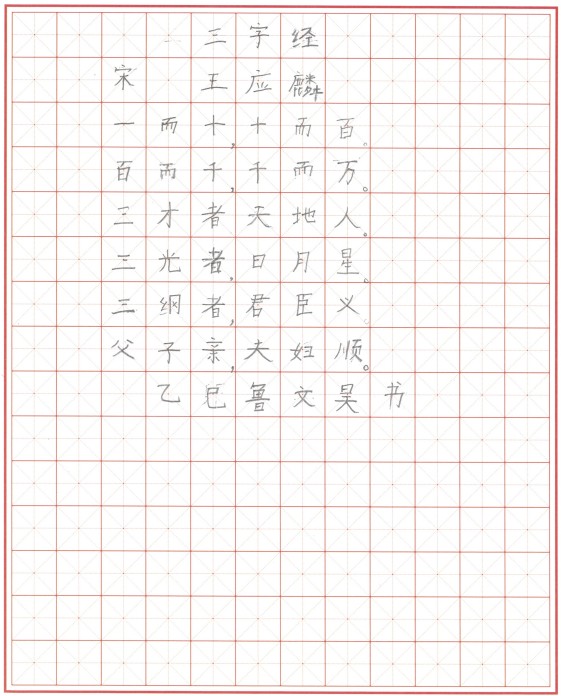 三字经
宋 王应麟
一而十,十而百。
百而千,千而万。
三才者天地人。
三光者,日月星。
三纲者,君臣义。
父子亲,夫妇顺。
乙巳鲁文昊书